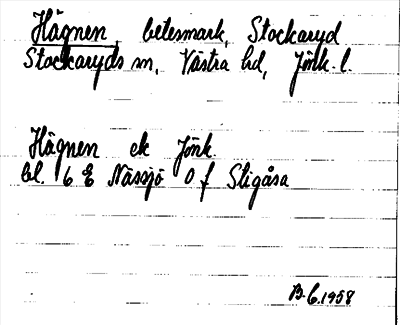 Hägnen, betesmark, Stockaryd
Stockaryds sn, Västra hd, Jönk. l.
Hägnen ek Jönk.
bl. 6 E Nässjö 0 f Stigåsa
B. G. 1958